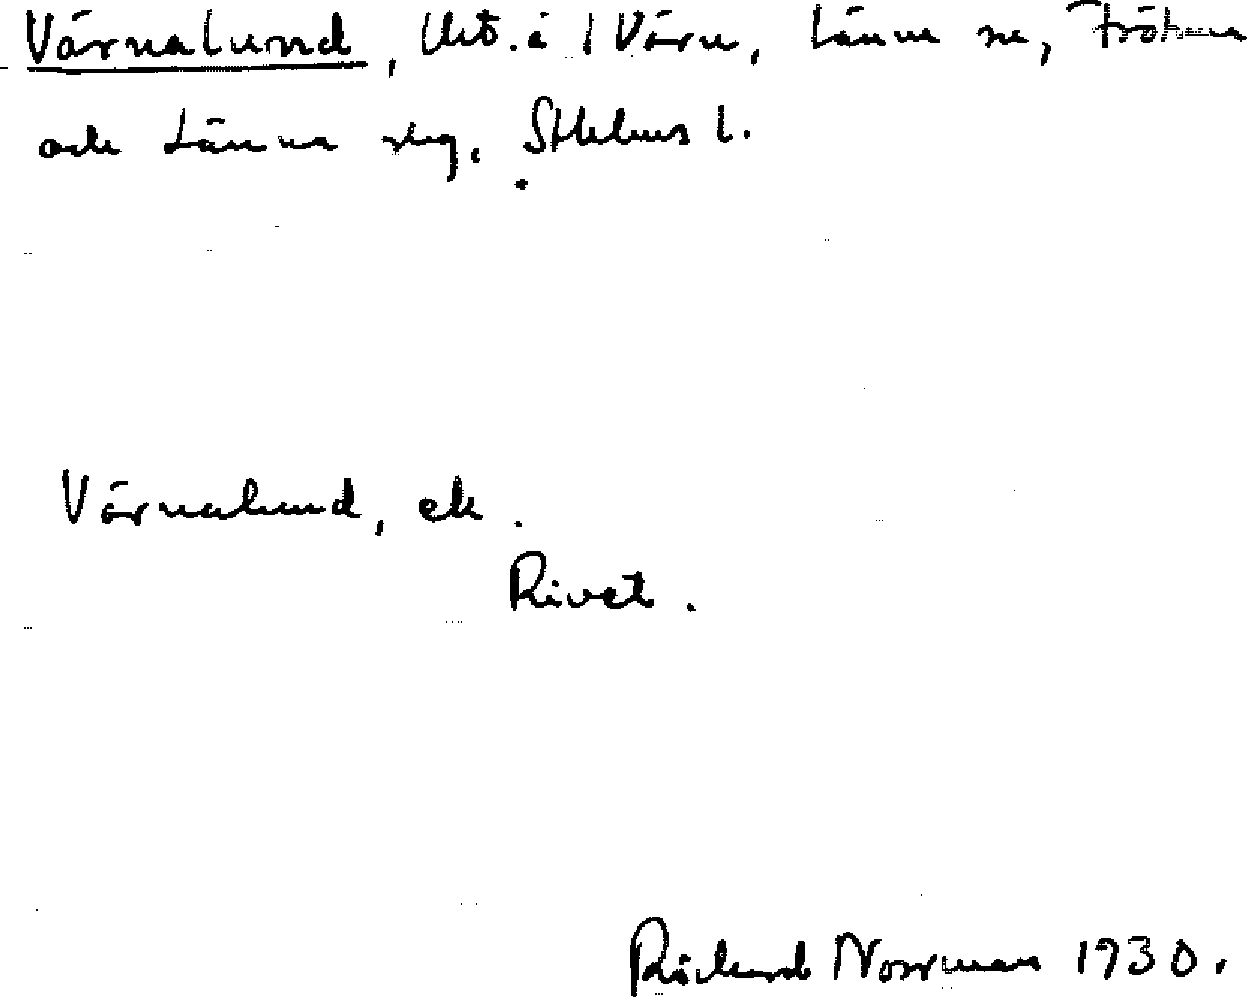 Värnalund, Uto. å 1 Värn, Länna sn, Fröhan
och Länna skg, Sthlms l.
Värnalund, ek.
Rivet.
Rickard Norrman 1930.